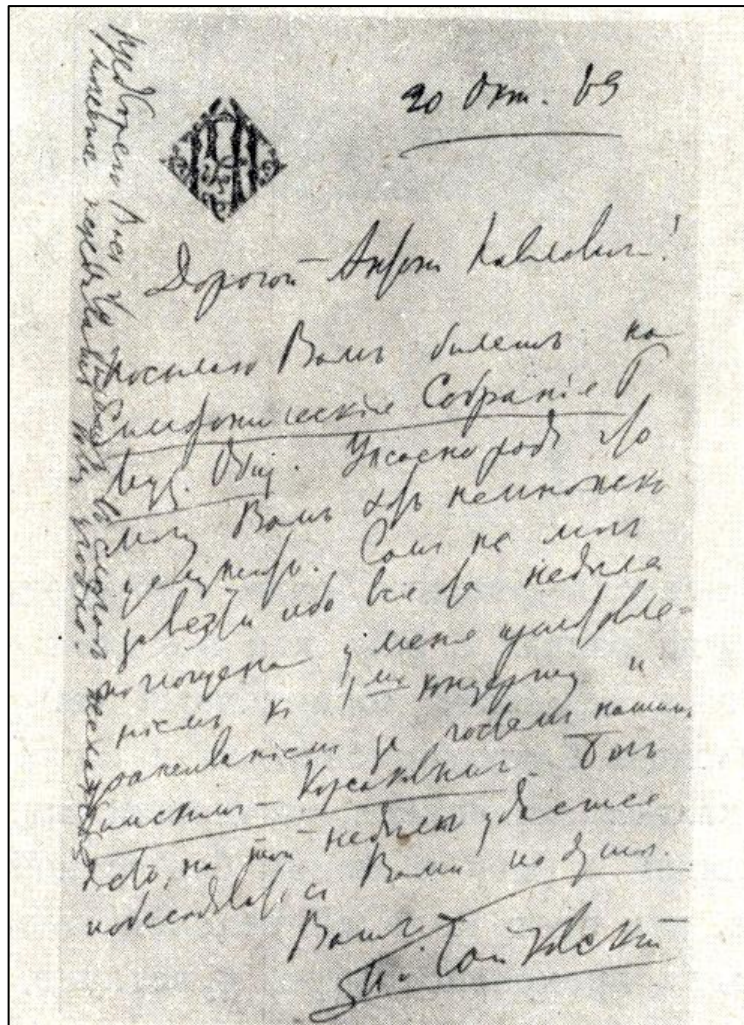 20 Окт. 89
Дорогой Антон Павлович!
Посылаю Вамъ билетъ на
Симфоническiя Собранiя Р
Муз. Общ. Ужасно радъ что
могу Вамъ хоть немножко
услужить. Самъ не могъ
завезти ибо вся эта неделя
поглощена у меня приготовле=
нiемъ к 1му концерту и
ухаживанiемъ за гостемъ нашим
Римскимъ-Корсаковымъ. Богъ
дастъ, на той неделе удастся
побеседовать с Вами по душе.
Вашъ
П. Чайковскiй
Вас
билет
кому угодно.